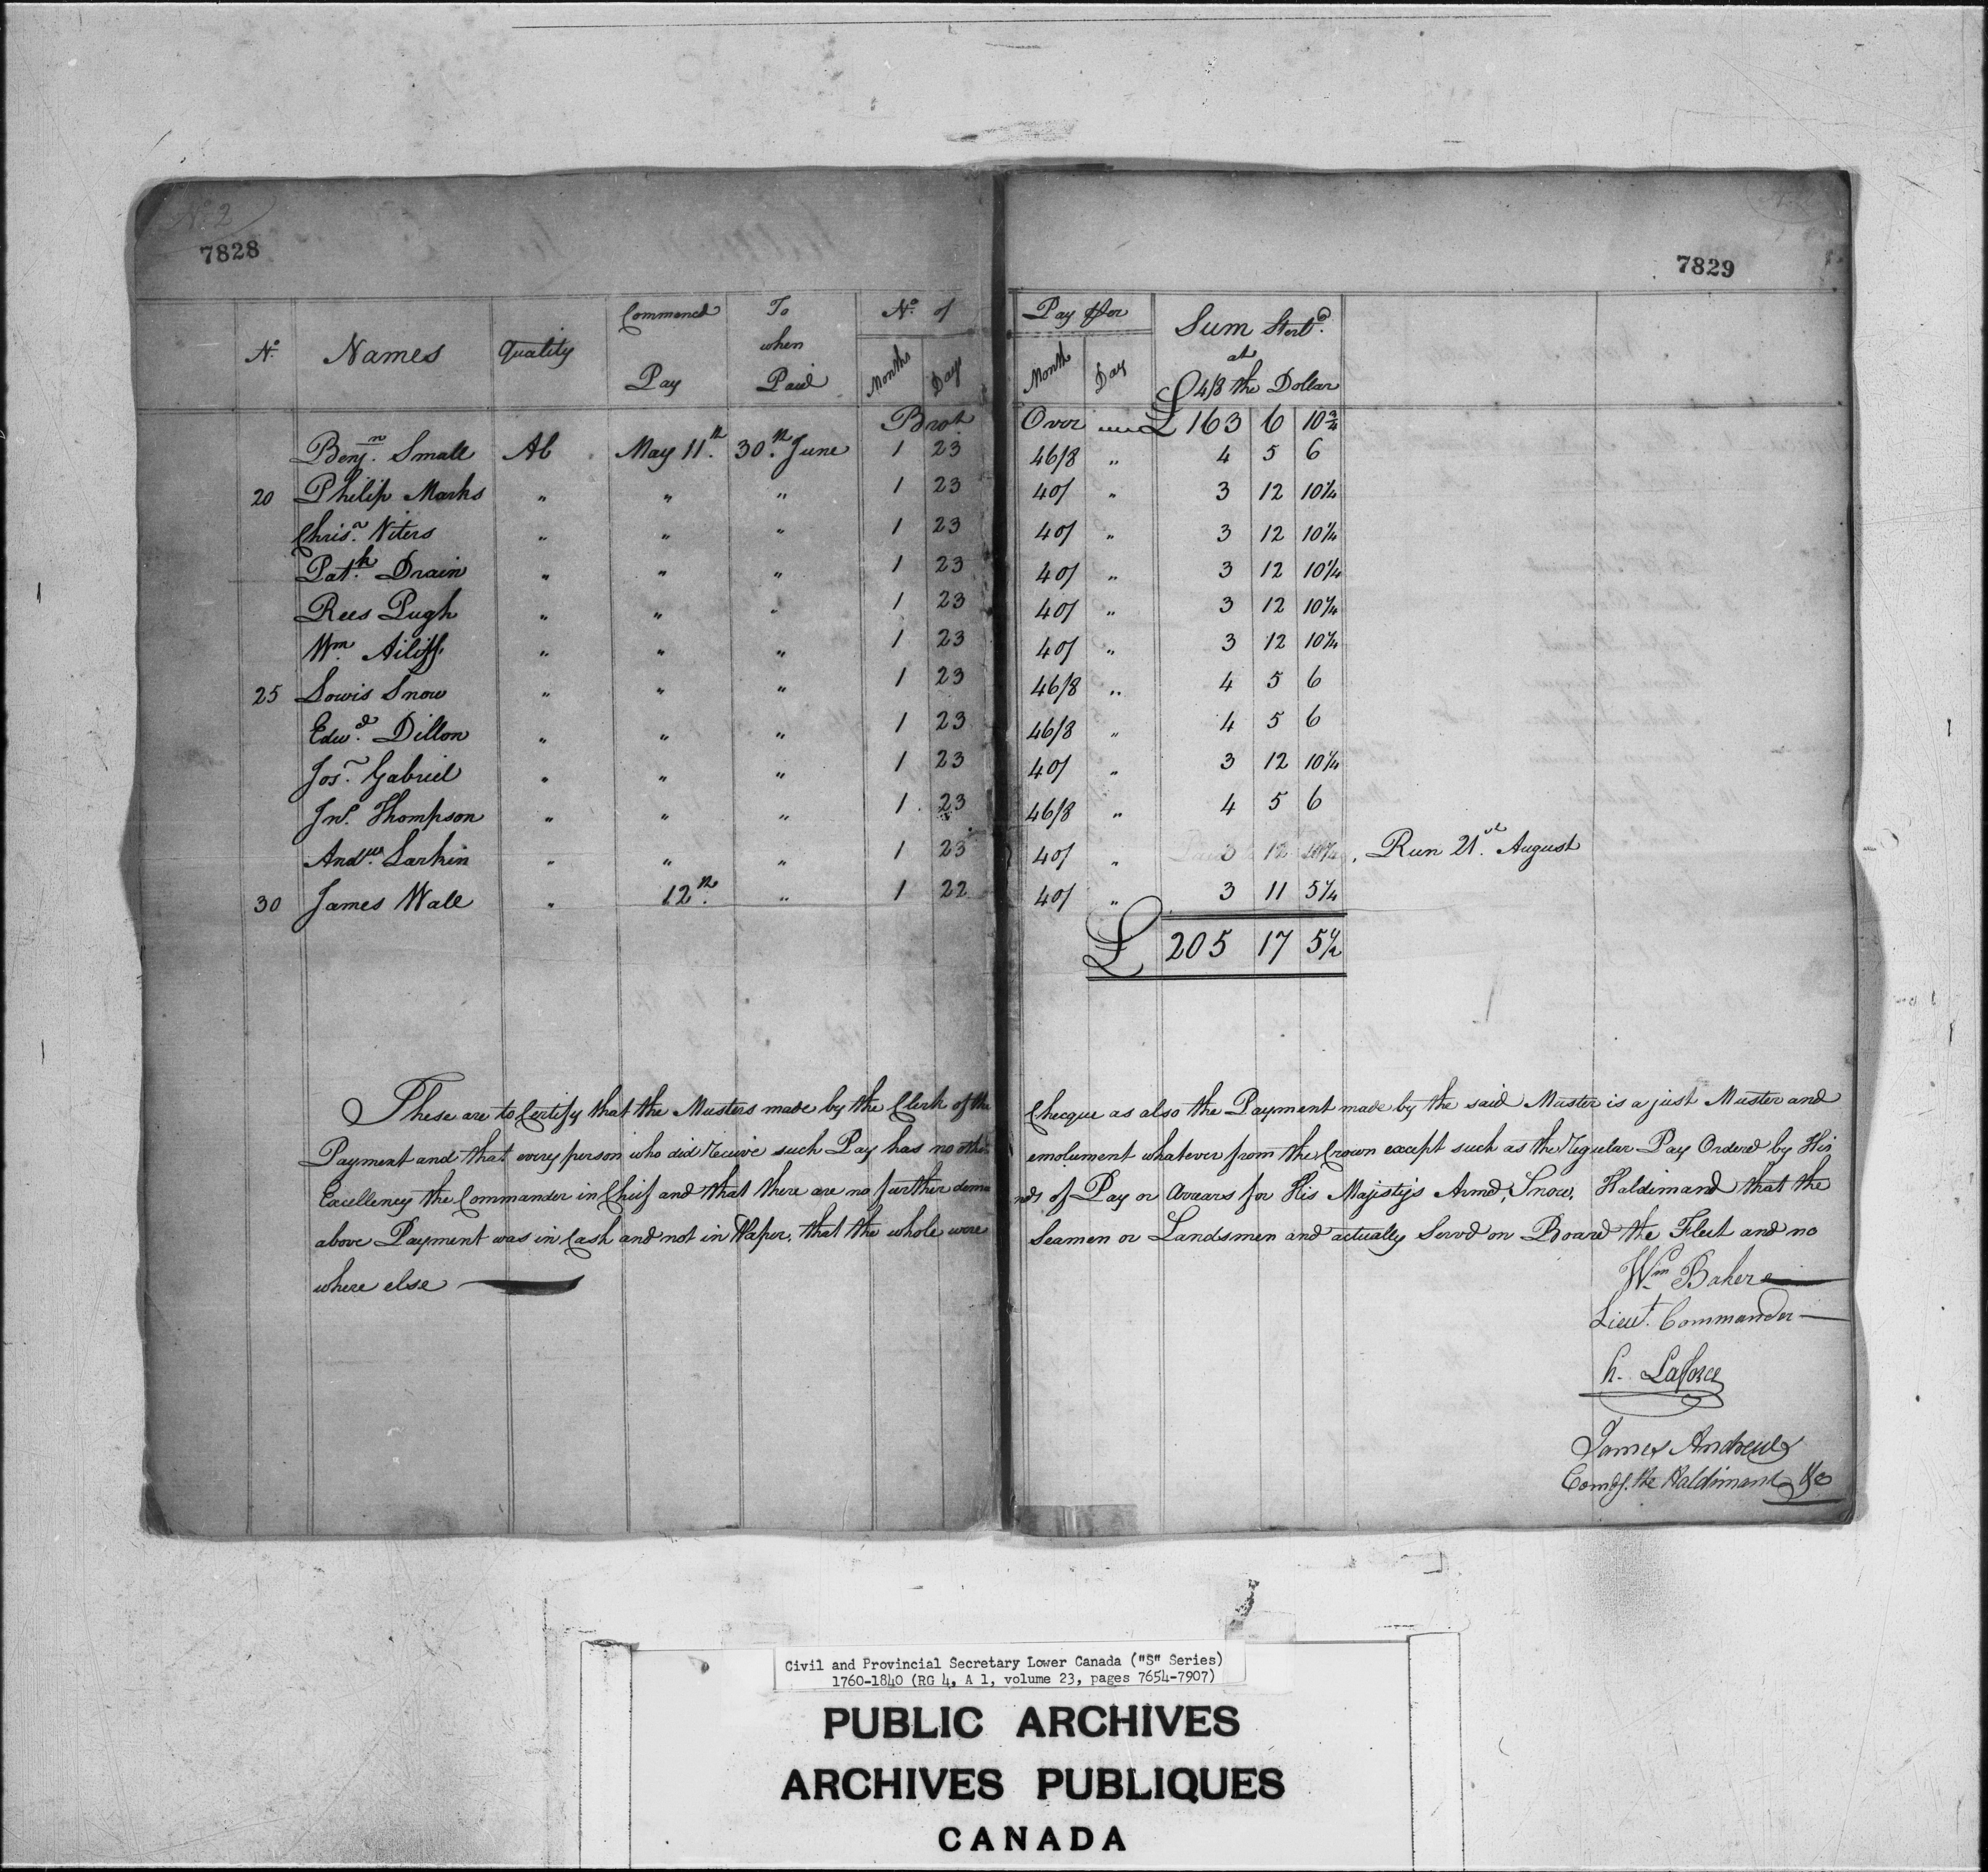 No. 2
7828
7829
No. Names Quality Commenced Pay To when Paid No. of Months Days Pay per Month Day Sum Sterlg. at 4/8 the Dollar
Brot. Over £ 163 6 10 3/4
Benjn. Small Ab May 11th. 30th. June 1 23 46/8 " 4 5 6
20 Philip Marks " " " 1 23 40/ " 3 12 10 1/4
Chrisn. Niters " " " 1 23 40/ " 3 12 10 1/4
Patk. Drain " " " 1 23 40/ " 3 12 10 1/4
Rees Pugh " " " 1 23 40/ " 3 12 10 1/4
Wm. Ailiff " " " 1 23 40/ " 3 12 10 1/4
25 Lowis Snow " " " 1 23 46/8 " 4 5 6
Edwd. Dillon " " " 1 23 46/8 " 4 5 6
Jos. Gabriel " " " 1 23 40/ " 3 12 10 1/4
Jno. Thompson " " " 1 23 46/8 " 4 5 6
Andrw. Larkin " " " 1 23 40/ " 3 12 10 1/4 Run 21st. August
30 James Wale " 12th. " 1 22 40/ " 3 11 5 1/4
£ 205 17 5 1/2
These are to Certify that the Musters made by the Clerk of the Checque as also the Payment made by the said Master is a just Muster and
Payment and that every person who did receive such Pay has no other emolument whatever from the Crown except such as the regular Pay Ordered by His
Excellency the Commander in Chief and that there are no further demands of Pay or Arrears for His Majesty's Armd. Snow, Haldimand that the
above Payment was in Cash and not in Paper, that the whole were Seamen or Landsmen and actually Servd on Board the Fleet and no
where else
Wm Baker
Lieut. Commander
h. Laforce
James Andrews
Comdg. the Haldimand &c
Civil and Provincial Secretary Lower Canada ("S" Series)
1760-1840 (RG 4, A 1, volume 23, pages 7654-7907)
PUBLIC ARCHIVES
ARCHIVES PUBLIQUES
CANADA